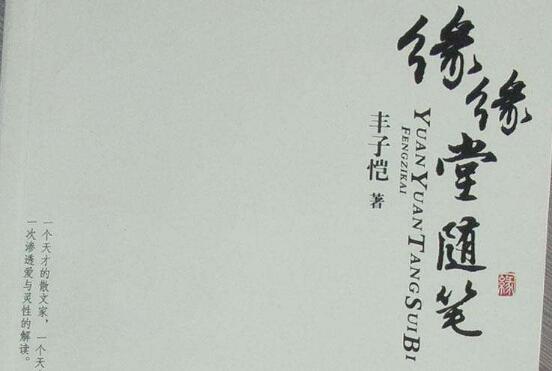 缘缘堂随笔
YUAN YUAN TANG SUI BI
FENGZIKAI
丰子恺 著
缘
一个天才的散文家，一个天
一次渗透爱与灵性的解读。